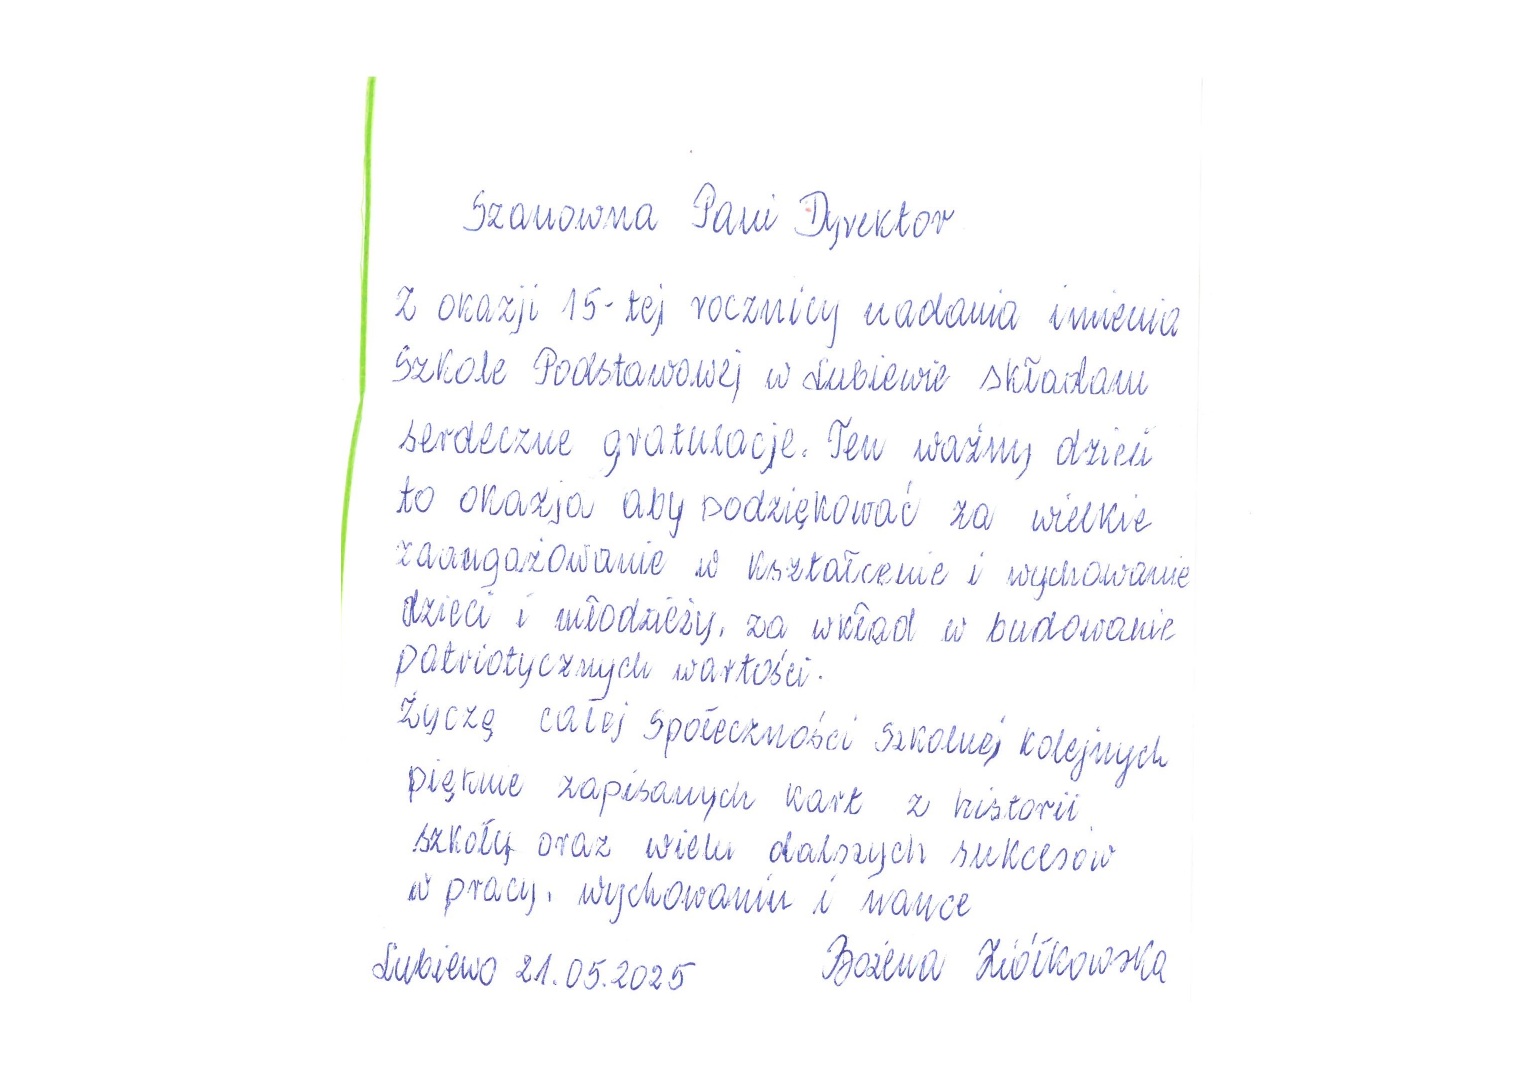 Szanowna Pani Dyrektor
Z okazji 15-tej rocznicy nadania imienia
Szkole Podstawowej w Lubiewie składam
serdeczne gratulacje. Ten ważny dzień
to okazja aby podziękować za wielkie
zaangażowanie w kształcenie i wychowanie
dzieci i młodzieży, za wkład w budowanie
patriotycznych wartości.
Życzę całej Społeczności Szkolnej kolejnych
pięknie zapisanych kart z historii
szkoły oraz wielu dalszych sukcesów
w pracy, wychowaniu i nauce
Lubiewo 21.05.2025 Bożena Ziółkowska